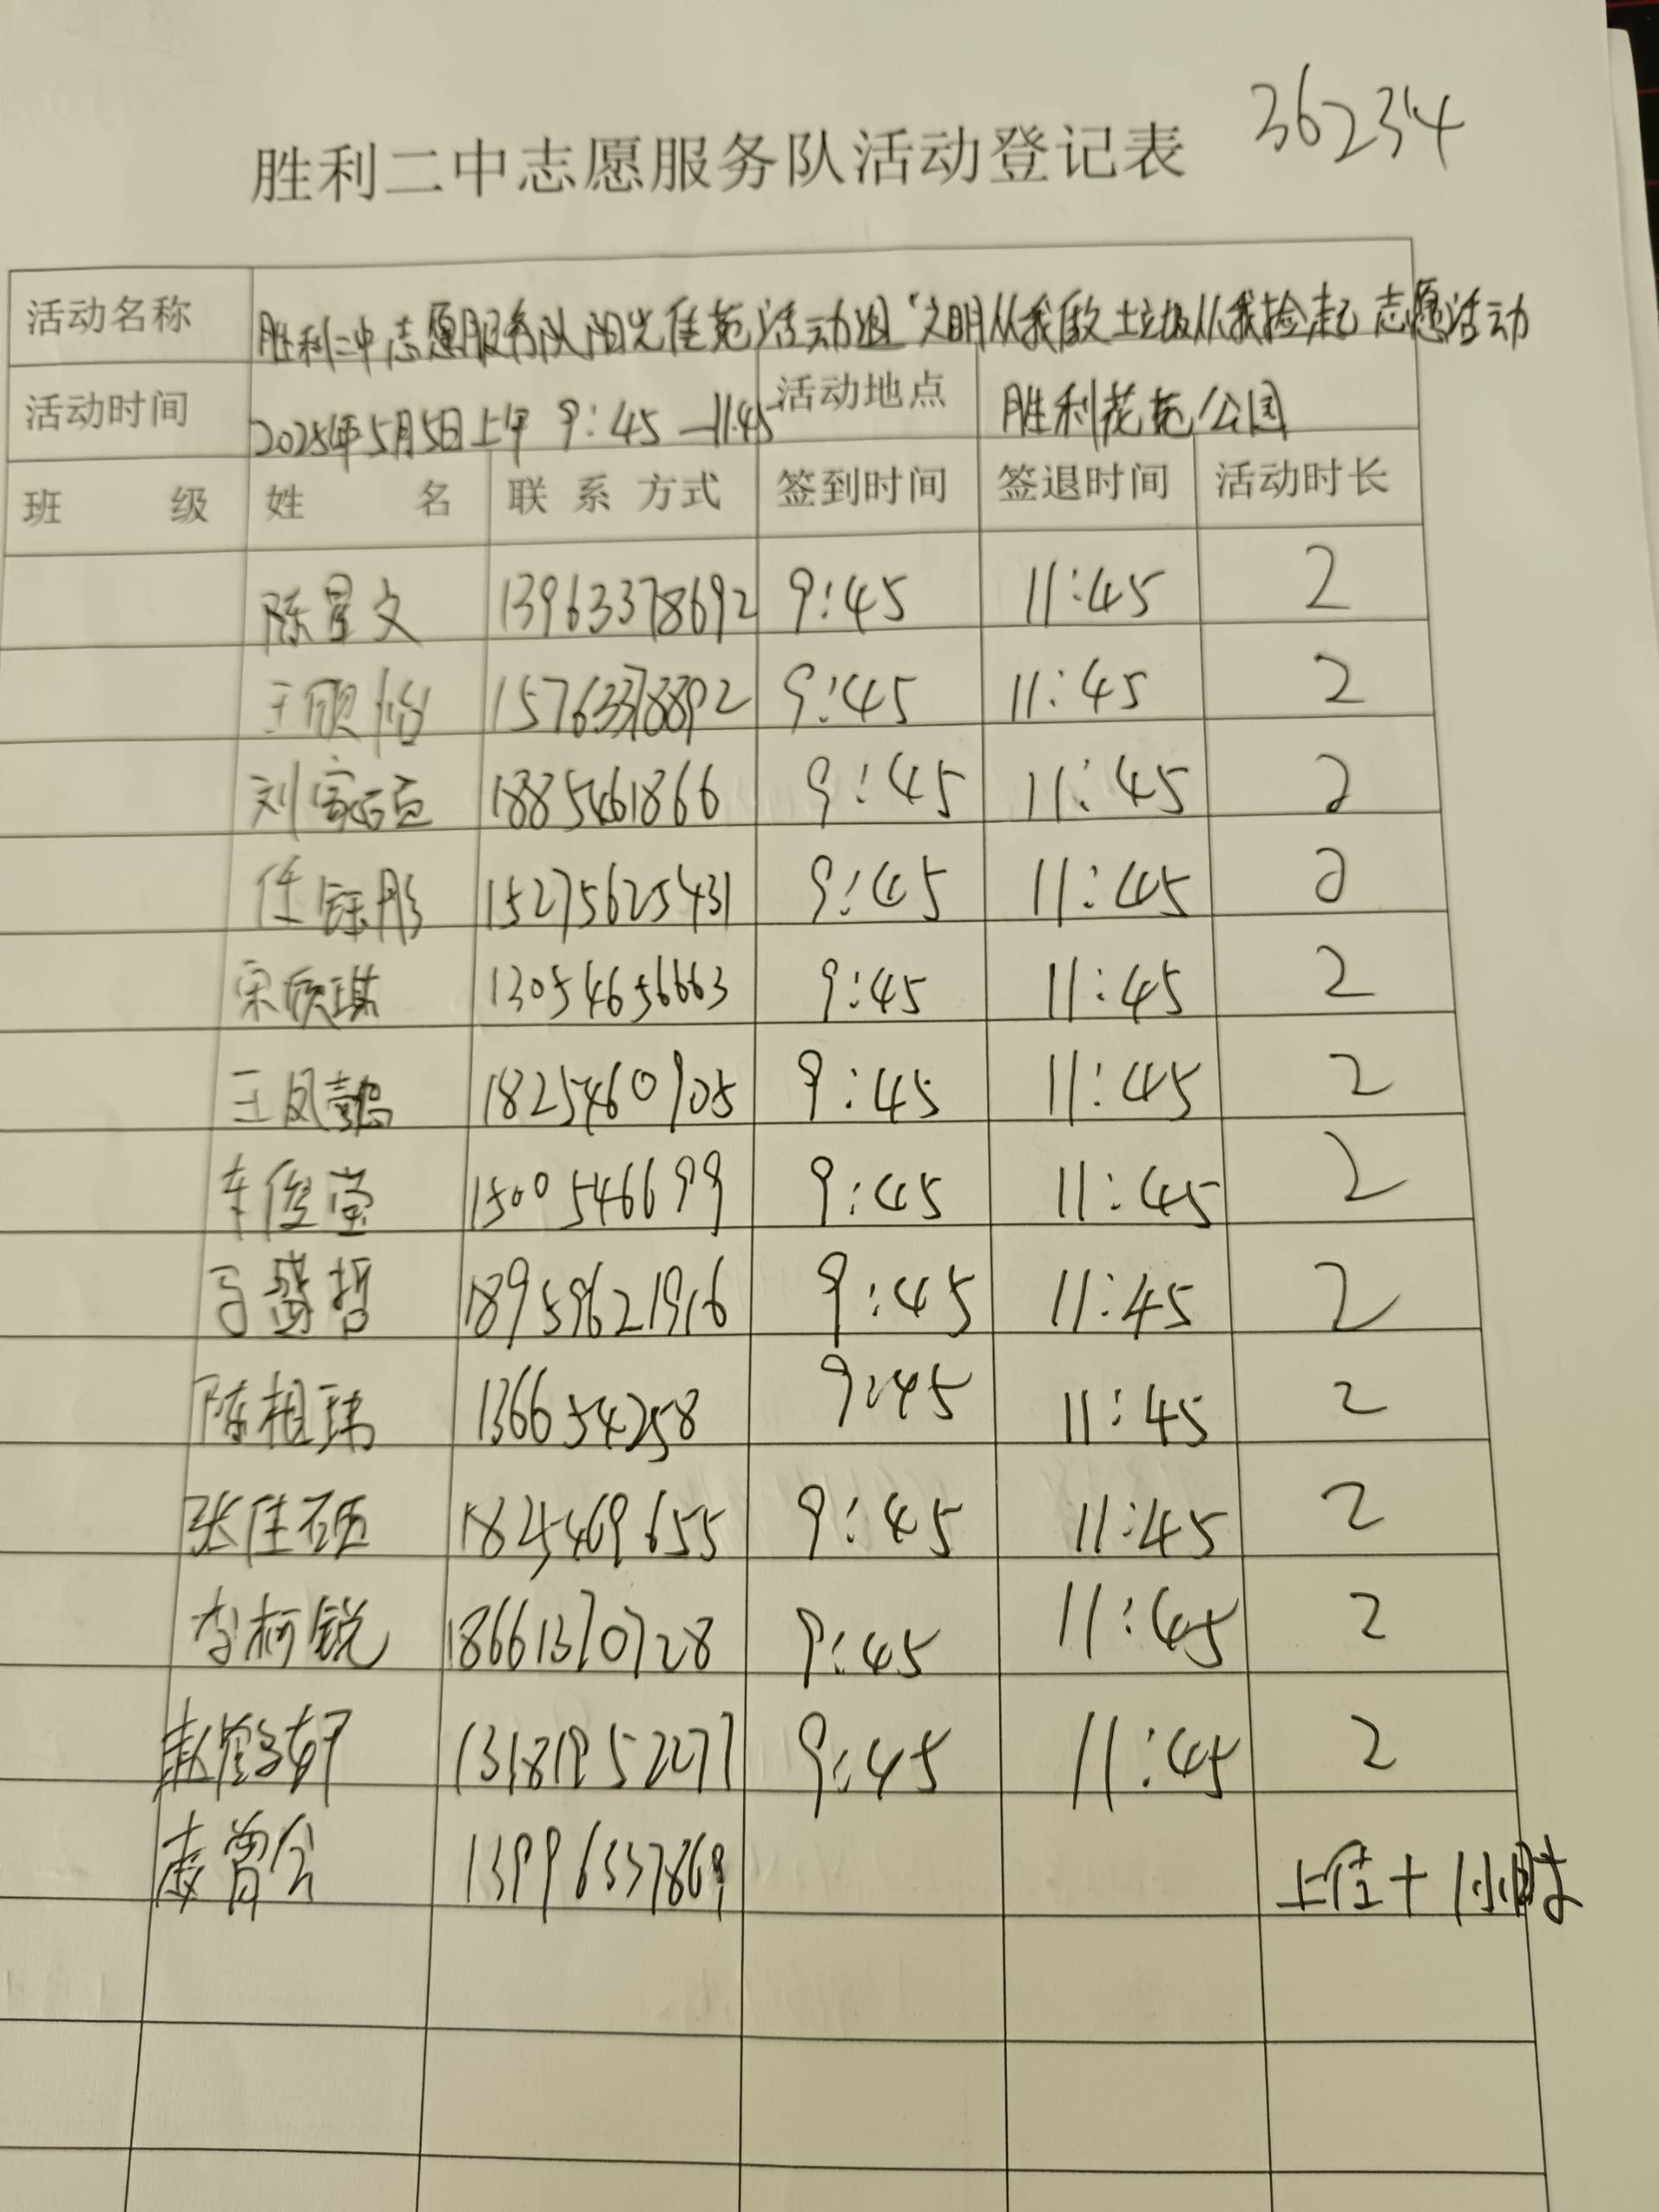 36234
胜利二中志愿服务队活动登记表
活动名称 胜利二中志愿服务队阳光佳苑活动组“文明从我做 垃圾从我捡起 志愿活动
活动时间 2025年5月5日上午 9:45—11:45 活动地点 胜利花苑公园
班 级 姓 名 联系方式 签到时间 签退时间 活动时长
陈星文 13963378692 9:45 11:45 2
王颐怡 15763378892 9:45 11:45 2
刘家 1885461866 9:45 11:45 2
任 彤 15275625431 9:45 11:45 2
宋欣琪 13054656663 9:45 11:45 2
王凤懿 1825460905 9:45 11:45 2
李俊莹 1500546699 9:45 11:45 2
马盛哲 18959621916 9:45 11:45 2
陈相玮 136654258 9:45 11:45 2
张佳硕 1825469655 9:45 11:45 2
李柯锐 18661370728 9:45 11:45 2
赵 轩 13181952277 9:45 11:45 2
曾 1399633786 上传+1小时